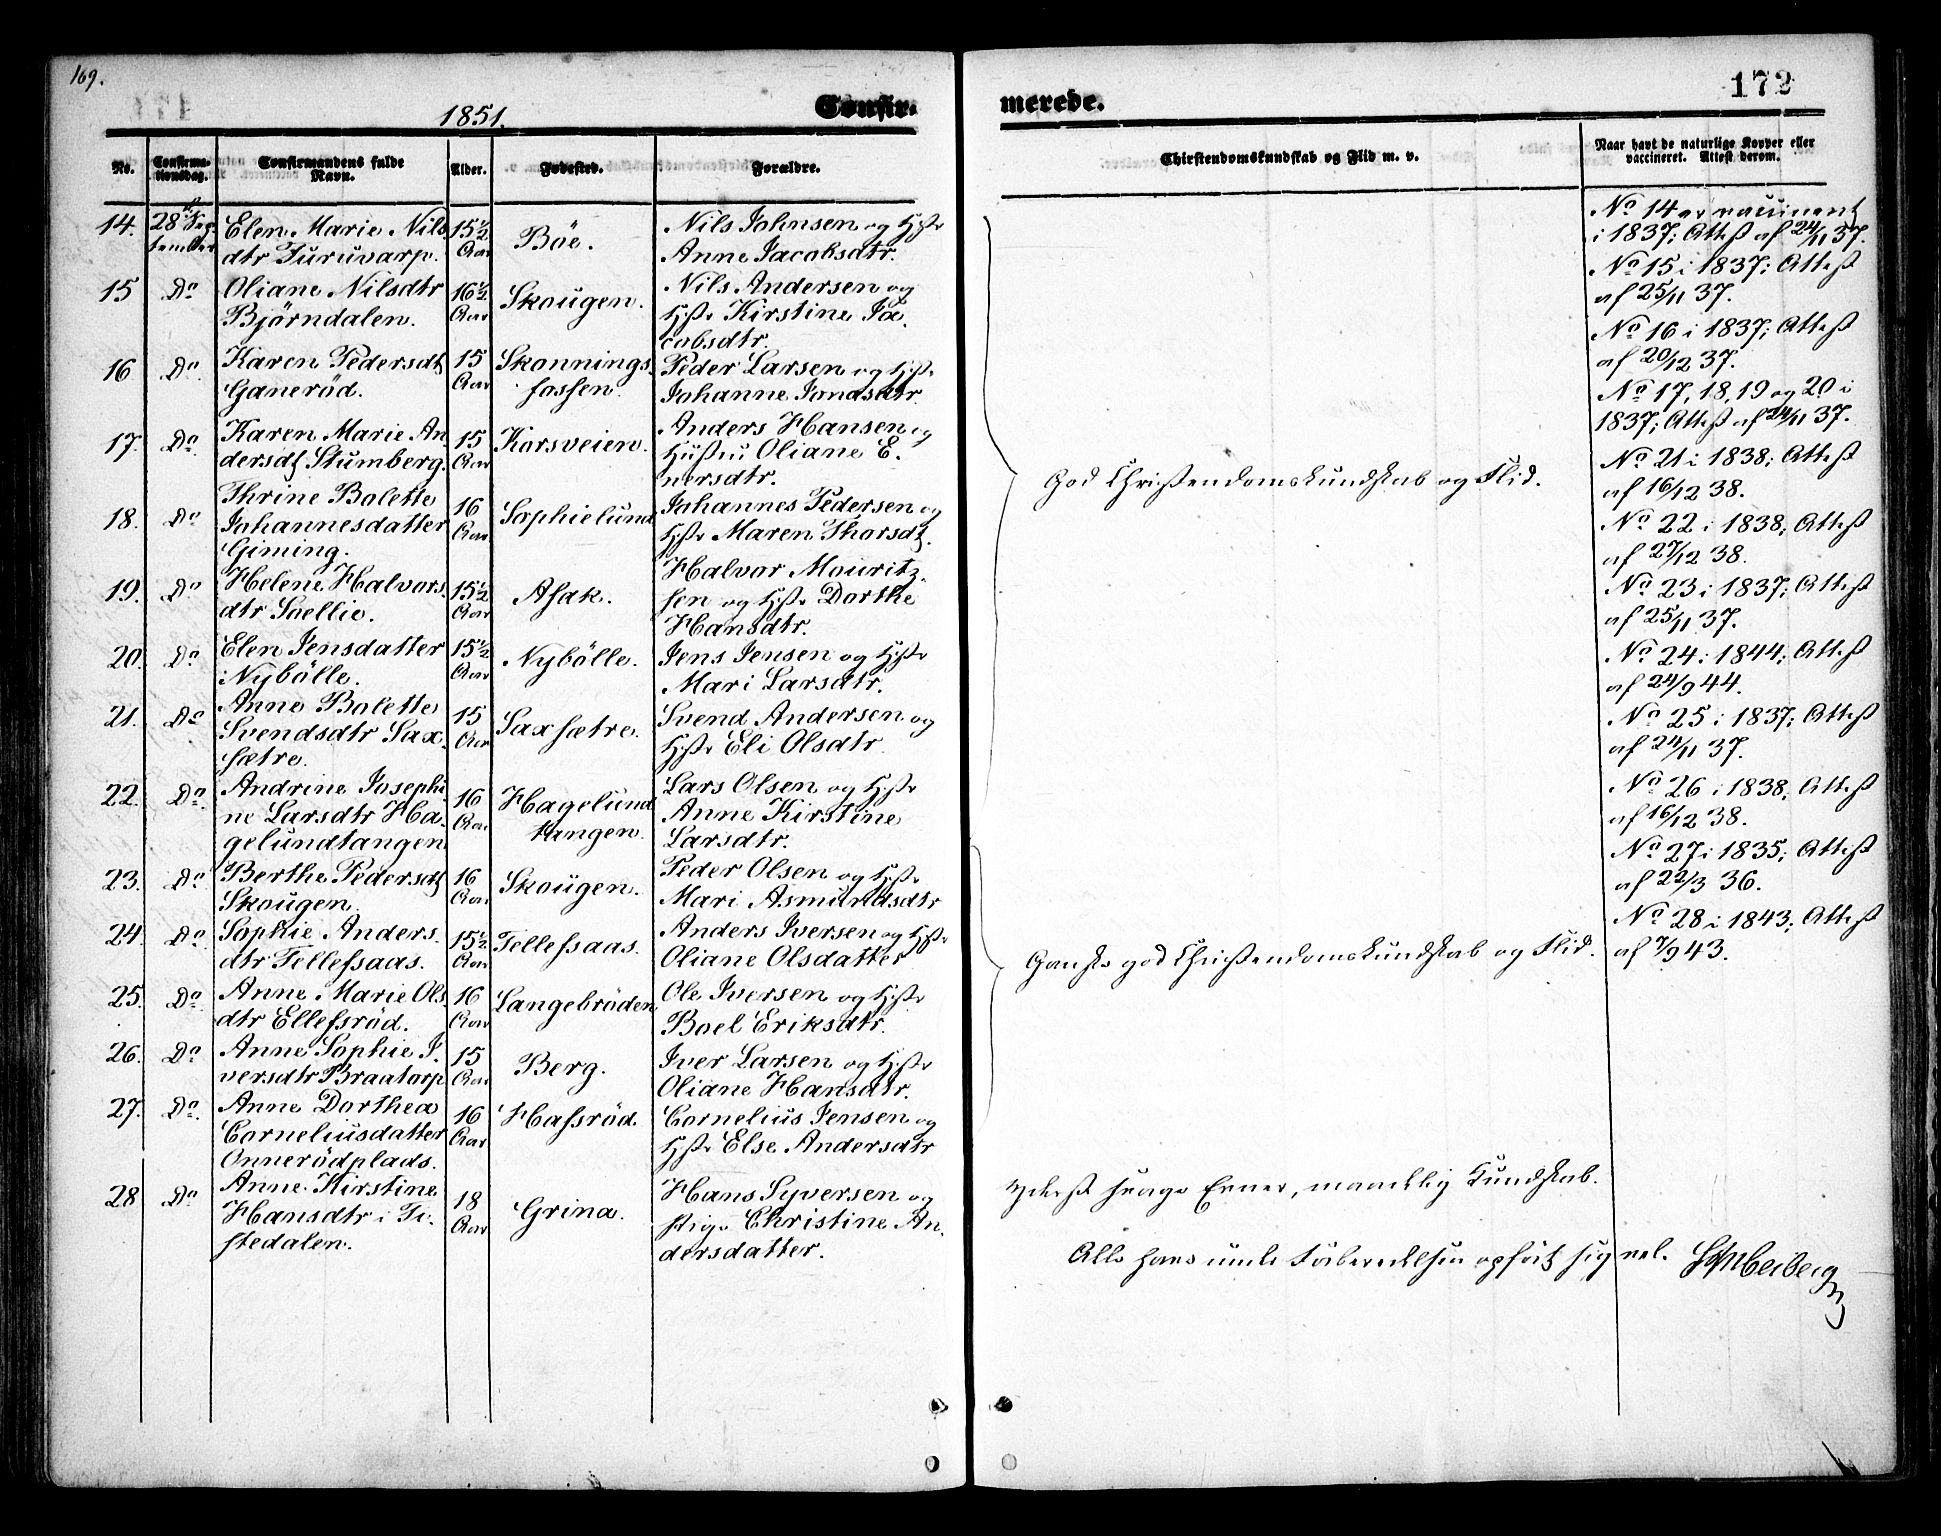 169.
172
1851.
Confir-
merede.
No.
Confirma-
tionsdag.
Confirmandens fulde
Navn.
Alder.
Fødested.
Forældre.
Chirstendomskundskab og Flid m. v.
Naar havt de naturlige Kopper eller
vaccineret. Attest derom.
14. 28de Sep-
tember
Elen Marie Nils
dtr Furuvarp.
15½
Aar
Böe.
Nils Johnsen og Hstr
Anne Jacobsdtr.
15 Do
Oliane Nilsdtr
Björndalen.
16½
Aar
Skougen.
Nils Andersen og
Hstr Kirstine Ja-
cobsdtr.
16 Do
Karen Pedersdt
Ganeröd.
15
Aar
Skonnings-
fossen.
Peder Larsen og Hstr
Johanne Jonasdtr.
17. Do
Karen Marie An
dersdt Stumberg.
15
Aar
Korsveien.
Anders Hansen og
Hustru Oliane E-
nersdtr.
18. Do
Thrine Bolette
Johannesdatter
Giming.
16
Aar
Sophielund
Johannes Pedersen og
Hstr Maren Thorsdt.
19. Do
Helene Halvors-
dtr Saellie.
15½
Aar
Asak.
Halvor Mouritz-
sen og Hstr Dorthe
Hansdtr.
20. Do
Elen Jensdatter
Nybölle.
15½
Aar
Nybölle.
Jens Jensen og Hstr
Mari Larsdtr.
21. Do
Anne Bolette
Svendsdtr Sax-
sætre.
15
Aar
Saxsætre.
Svend Andersen og
Hstr Eli Olsdtr
22. Do
Andrine Josephi-
ne Larsdtr Ha-
gelundtangen
16
Aar
Hagelund
tangen.
Lars Olsen og Hstr
Anne Kirstine
Larsdtr.
23. Do
Berthe Pedersdt
Skougen.
16
Aar
Skougen.
Peder Olsen og Hstr
Mari Asmundsdtr
24. Do
Sophie Anders-
dtr Tellefsaas.
15½
Aar
Tellefsaas.
Anders Iversen og Hstr
Oliane Olsdatter
25. Do
Anne Marie Ols-
dtr Ellefsröd.
16
Aar
Langebröden
Ole Iversen og Hstr
Boel Eriksdtr.
26. Do
Anne Sophie I-
versdtr Braatorp
15
Aar
Berg.
Iver Larsen og Hstr
Oliane Hansdtr.
27. Do
Anne Dorthea
Corneliusdatter
Onnerödplads.
16
Aar
Hafsröd.
Cornelius Jensen og
Hstr Else Andersdtr
28 Do
Anne Kirstine
Hansdtr i Ti-
stedalen.
18
Aar
Grina.
Hans Syversen og
Pige Christine An-
dersdatter.
God Christendomskundskab og Flid.
Ganske god Christendomskundskab og Flid.
Yderst svage Evner, maadelig Kundskab.
Alle have under Forberedelsen opført sig vel.
No 14 er vaccineret
i 1837; Attest af 24/11 37.
No 15 i 1837; Attest
af 25/11 37.
No 16 i 1837; Attest
af 20/12 37.
No 17, 18, 19 og 20 i
1837; Attest af 24/11 37.
No 21 i 1838; Attest
af 16/12 38.
No 22 i 1838; Attest
af 27/12 38.
No 23 i 1837; Attest
af 25/11 37.
No 24 i 1844; Attest
af 24/9 44.
No 25 i 1837; Attest
af 24/11 37.
No 26 i 1838; Attest
af 16/12 38.
No 27 i 1835; Attest
af 22/3 36.
No 28 i 1843; Attest
af 7/9 43.